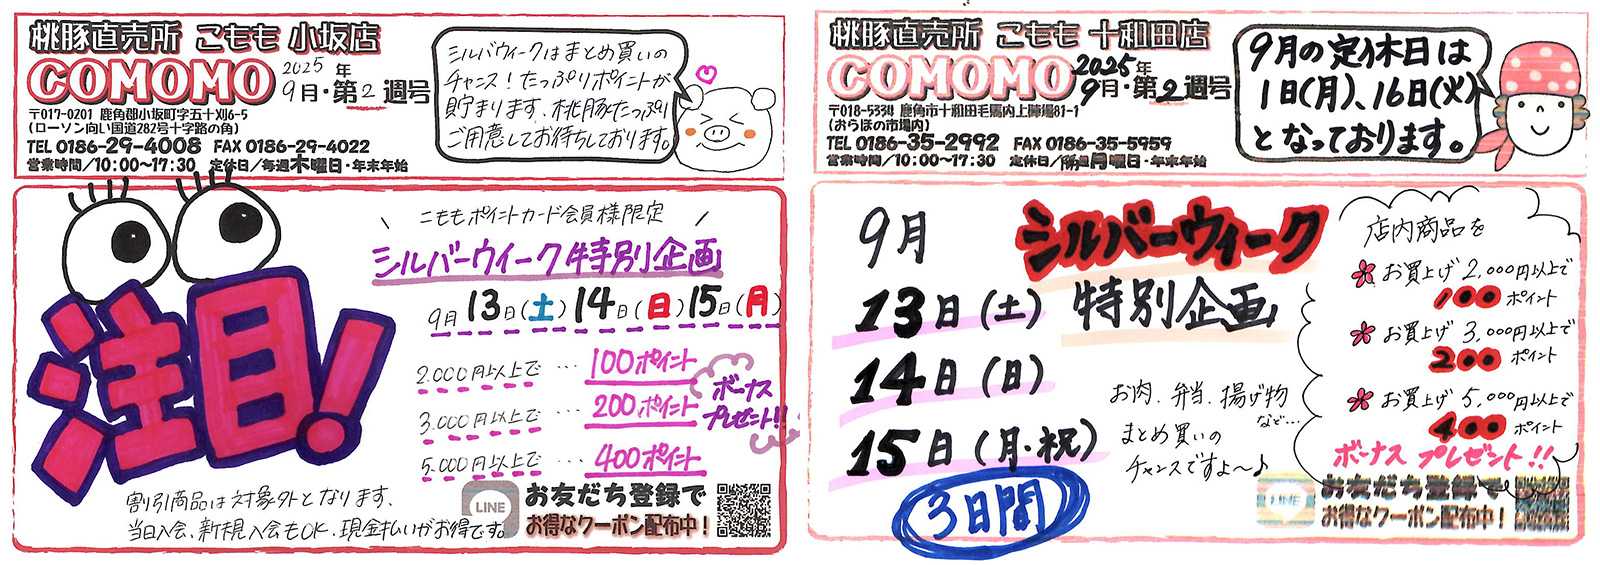 桃豚直売所 こもも 小坂店
COMOMO
2025年
9月・第2週号
〒017-0201 鹿角郡小坂町字五十刈6-5
(ローソン向い国道282号十字路の角)
TEL 0186-29-4008 FAX 0186-29-4022
営業時間/10:00〜17:30 定休日/毎週木曜日・年末年始
シルバウィークはまとめ買いの
チャンス!たっぷりポイントが
貯まります、桃豚たっぷり
ご用意してお待ちしております。
注目!
こももポイントカード会員様限定
シルバーウイーク特別企画
9月13日(土)14日(日)15日(月)
2.000円以上で … 100ポイント
3.000円以上で … 200ポイント
5.000円以上で … 400ポイント
ボーナス
プレゼント!!
割引商品は対象外となります、
当日入会、新規入会もOK、現金払いがお得です。
LINE
お友だち登録で
お得なクーポン配布中!
桃豚直売所 こもも 十和田店
COMOMO
2025年
9月・第2週号
〒018-5334 鹿角市十和田毛馬内上陣場81-1
(おらほの市場内)
TEL 0186-35-2992 FAX 0186-35-5959
営業時間/10:00〜17:30 定休日/隔週月曜日・年末年始
9月の定休日は
1日(月)、16日(火)
となっております。
9月
13日(土)
14日(日)
15日(月・祝)
3日間
シルバーウィーク
特別企画
お肉、弁当、揚げ物
など…
まとめ買いの
チャンスですよ〜♪
店内商品を
お買上げ2,000円以上で
100ポイント
お買上げ3,000円以上で
200ポイント
お買上げ5,000円以上で
400ポイント
ボーナス プレゼント!!
LINE
お友だち登録で
お得なクーポン配布中!